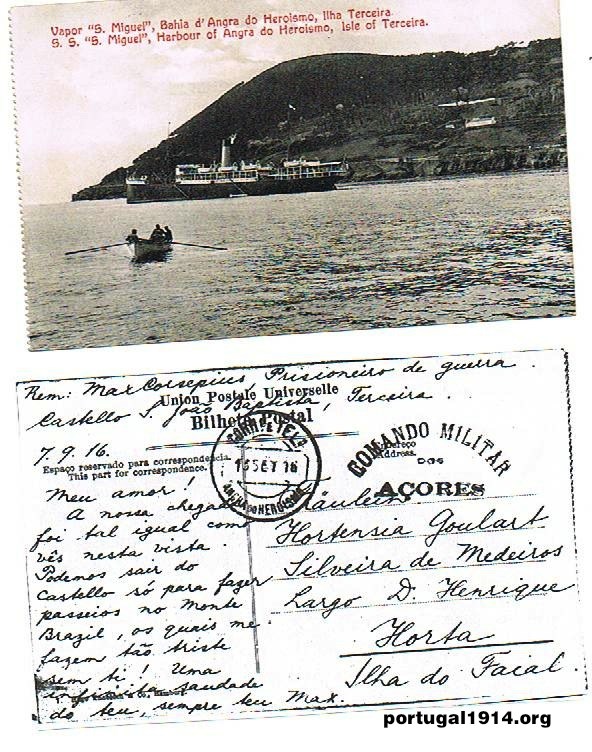 Vapor "S. Miguel", Bahia d'Angra do Heroismo, Ilha Terceira
S. S. "S. Miguel", Harbour of Angra do Heroismo, Isle of Terceira.
Rem: Max Corsepius, Prisioneiro de guerra
Union Postale Universelle
Castello S. João Baptista, Terceira.
Bilhete Postal
7.9.16.
Espaço reservado para correspondencia.
This part for correspondence.
Endereço
Address.
CORRº E TELº
15 SET 16
ANGRA DO HEROISMO
COMANDO MILITAR
DOS
AÇORES
Meu amor!
A nossa chegada
foi tal igual como
vês nesta vista.
Podemos sair do
Castello só para fazer
passeios no Monte
Brazil, os quais me
fazem tão triste
sem ti! Uma
infinita saudade
do teu, sempre teu Max.
Fräulein
Hortensia Goulart
Silveira de Medeiros
Largo D. Henrique
Horta
Ilha do Faial.
portugal1914.org